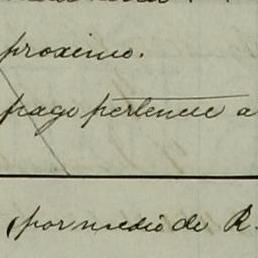 proximo.
pago pertenece a
por medio de R.